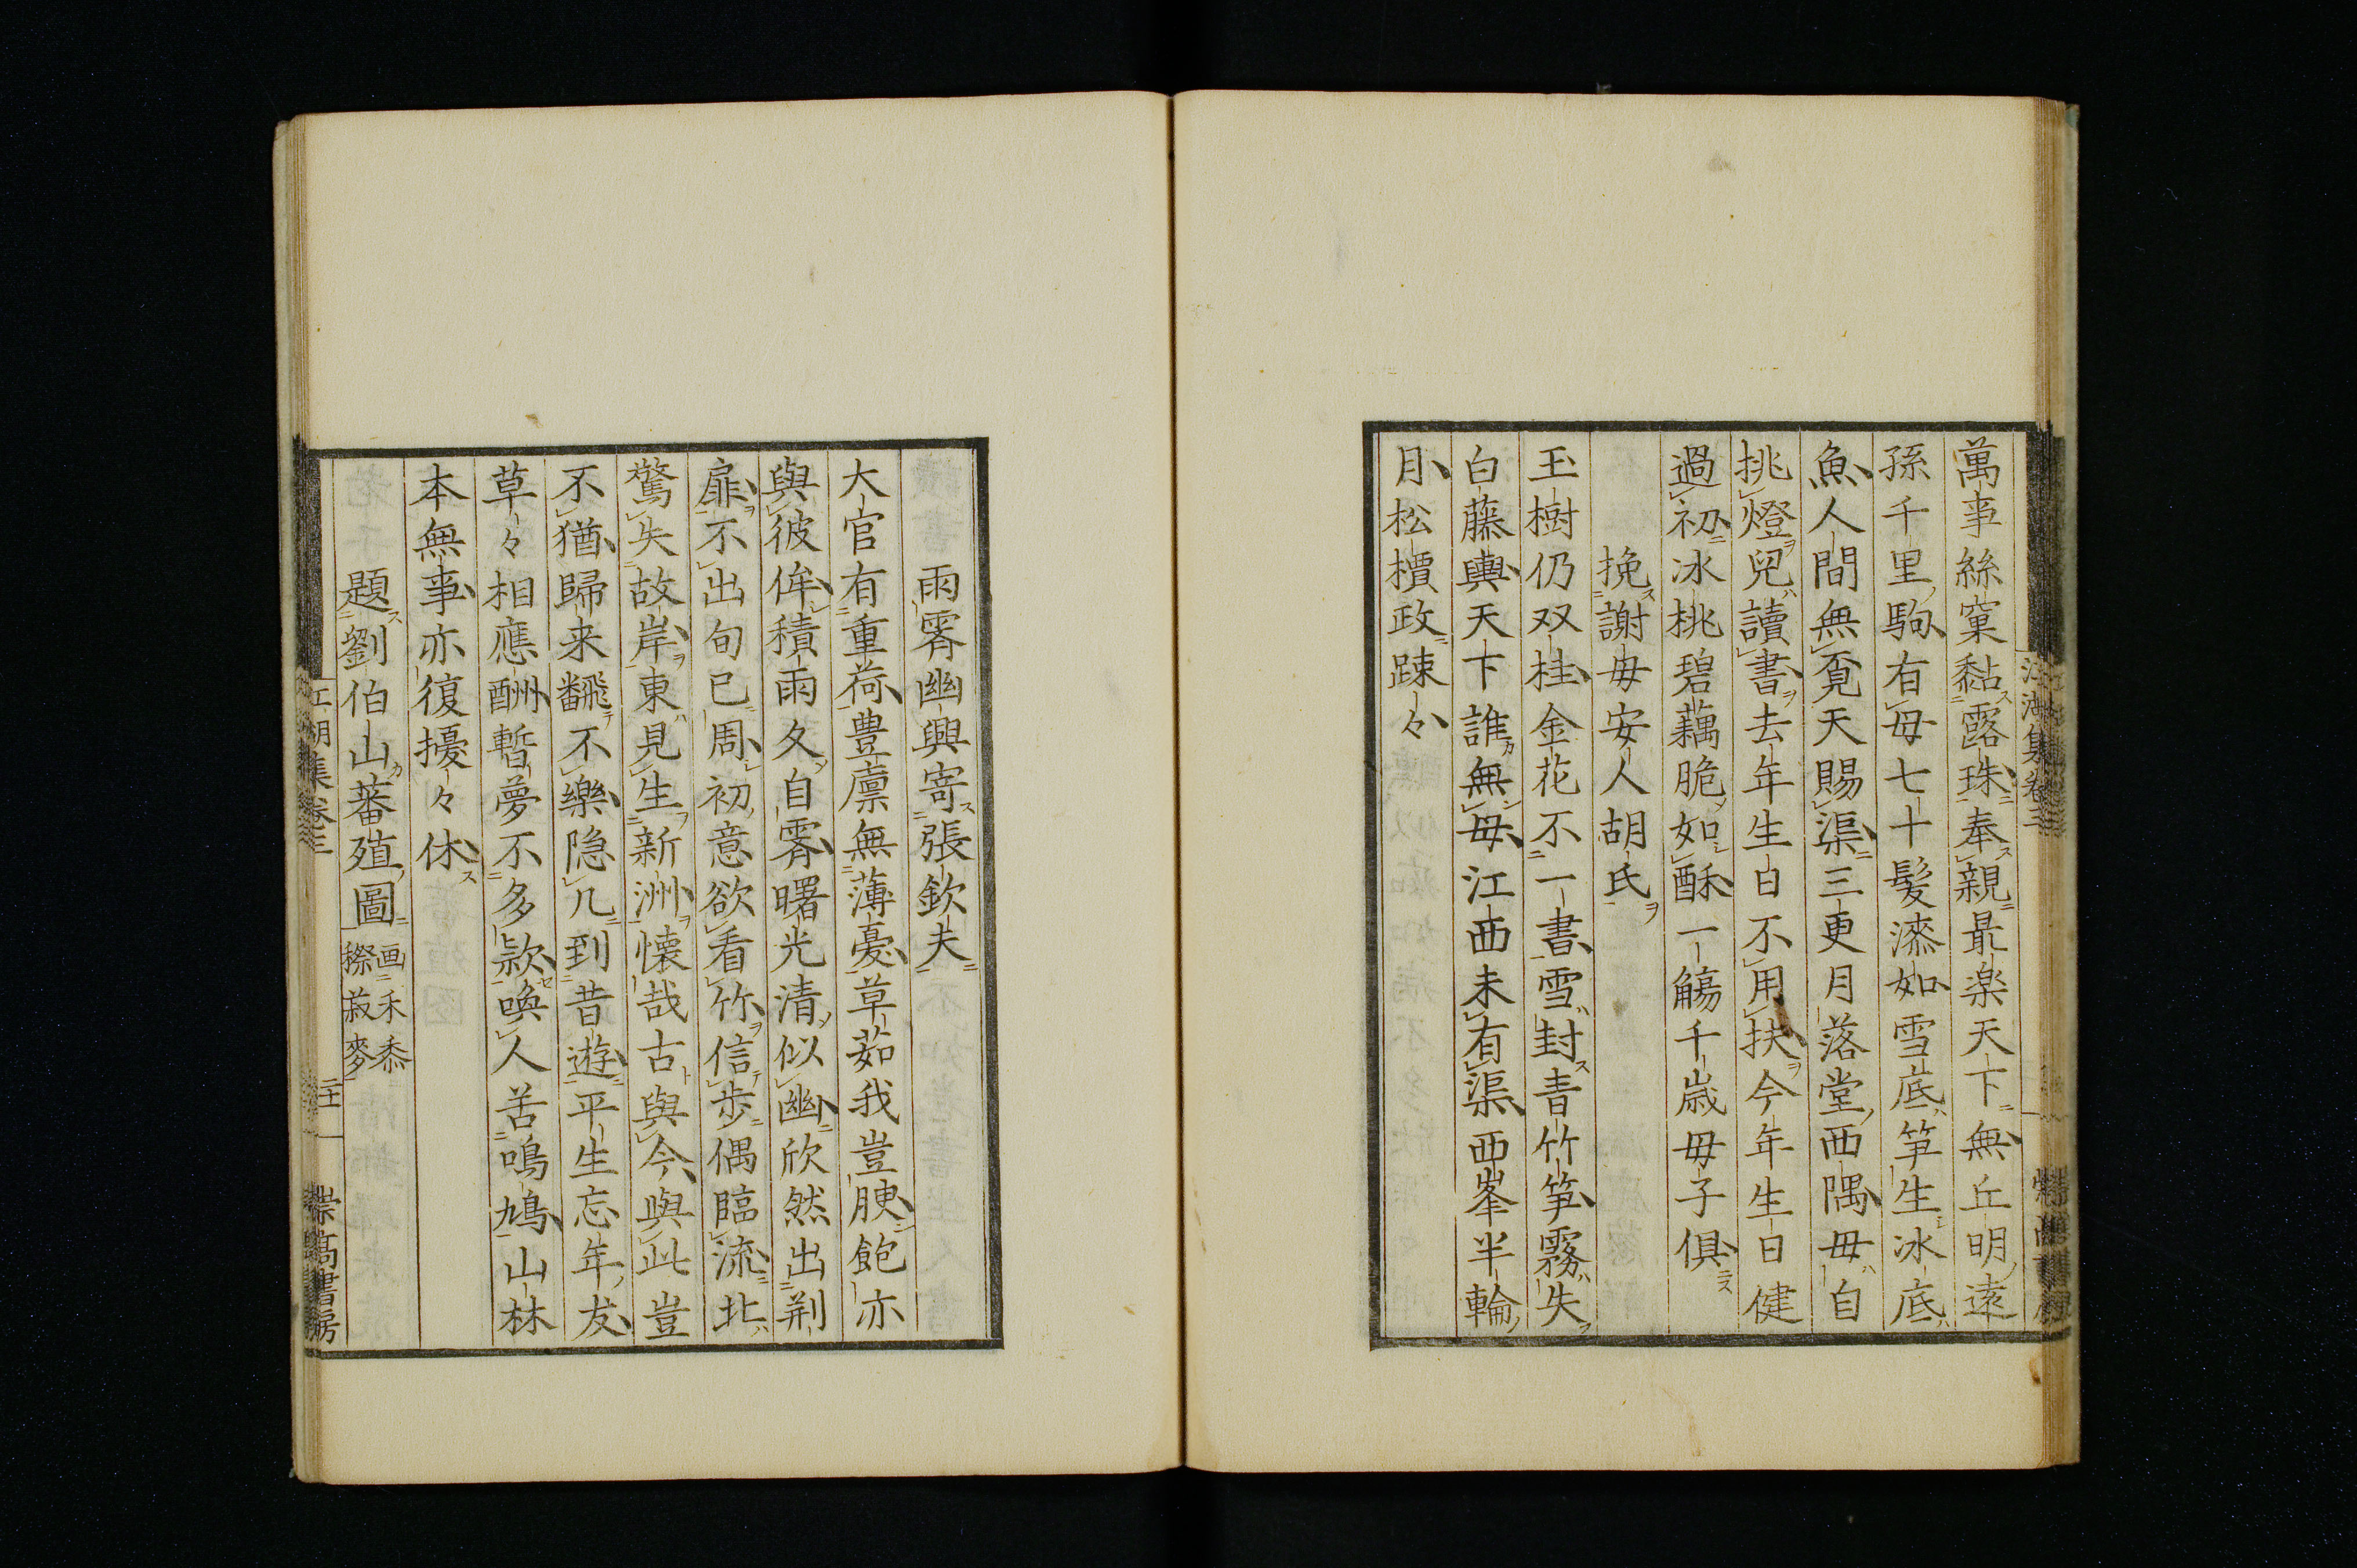 萬事絲窠黏露珠奉親最楽天下無丘明遠
孫千里駒有母七十髪漆如雪底笋生冰底
魚人間無覔天賜渠三更月落堂西隅毋自
挑燈兒讀書去年生日不用扶今年生日健
過初冰桃碧藕脆如酥一觴千歳毋子俱
挽謝毋安人胡氏
玉樹仍双桂金花不一書雪封青竹笋霧失
白藤輿天下誰無毋江西未有渠西峯半輪
月松檟政踈々
雨霽幽興寄張欽夫
大官有重荷豊廪無薄憂草茹我豈腴飽亦
與彼侔積雨久自霽曙光清似幽欣然出荆
扉不出旬已周初意欲看竹信歩偶臨流北
驚失故岸東見生新洲懐哉古與今與此豈
不猶歸来飜不樂隐几到昔遊平生忘年友
草々相應酬暫夢不多款喚人苦鳴鳩山林
本無事亦復擾々休
題劉伯山蕃殖圖 画禾黍穄菽麥
江湖集卷三
二十一
崇高書房